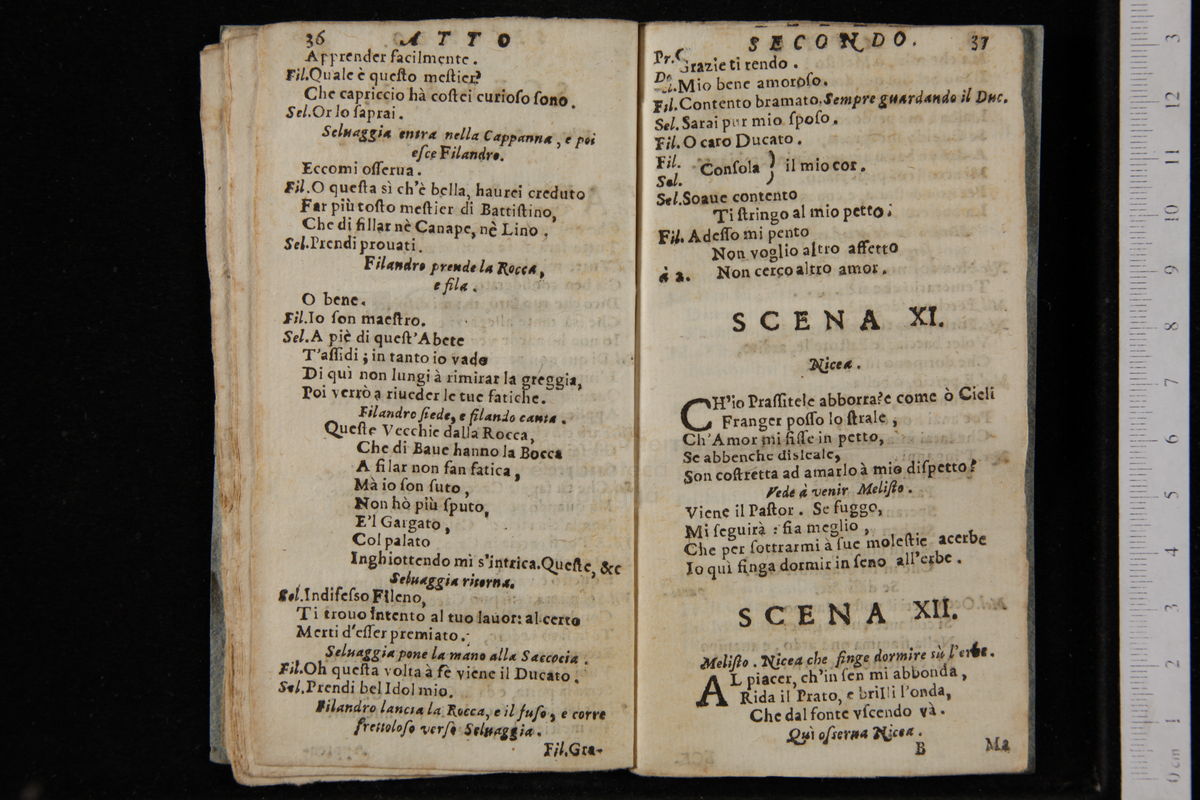 36 ATTO
Apprender facilmente.
Fil.Quale è queſto meſtier?
Che capriccio hà coſtei curioſo ſono.
Sel.Or lo ſaprai.
Seluaggia entra nella Cappanna, e poi
eſce Filandro.
Eccomi oſſerua.
Fil.O queſta sì ch'è bella, haurei creduto
Far più toſto meſtier di Battiſtino,
Che di fillar nè Canape, nè Lino.
Sel.Prendi prouati.
Filandro prende la Rocca,
e fila.
O bene.
Fil.Io ſon maeſtro.
Sel.A piè di queſt'Abete
T'aſſidi; in tanto io vado
Di quì non lungi à rimirar la greggia,
Poi verrò a riueder le tue fatiche.
Filandro ſiede, e filando canta.
Queſte Vecchie dalla Rocca,
Che di Baue hanno la Bocca
A filar non fan fatica,
Mà io ſon ſuto,
Non hò più ſputo,
E'l Gargato,
Col palato
Inghiottendo mi s'intrica.Queſte, &c
Seluaggia ritorna.
Sel.Indifeſſo Fileno,
Ti trouo intento al tuo lauor: al certo
Merti d'eſſer premiato.
Seluaggia pone la mano alla Saccocia.
Fil.Oh queſta volta à fè viene il Ducato.
Sel.Prendi bel Idol mio.
Filandro lancia la Rocca, e il fuſo, e corre
frettoloſo verſo Seluaggia.
Fil.Gra-
SECONDO. 37
Grazie ti rendo.
Mio bene amoroſo.
Fil.Contento bramato.Sempre guardando il Duc.
Sel.Sarai pur mio ſpoſo.
Fil.O caro Ducato.
Fil.
Sel. Conſola } il mio cor.
Sel.Soaue contento
Ti ſtringo al mio petto;
Fil.Adeſſo mi pento
Non voglio altro affetto
à 2. Non cerco altro amor.
SCENA XI.
Nicea.
CH'io Praſſitele abborra?e come ò Cieli
Franger poſſo lo ſtrale,
Ch'Amor mi fiſſe in petto,
Se abbenche disleale,
Son coſtretta ad amarlo à mio diſpetto?
Vede à venir Meliſto.
Viene il Paſtor. Se fuggo,
Mi ſeguirà: ſia meglio,
Che per ſottrarmi à ſue moleſtie acerbe
Io quì finga dormir in ſeno all'erbe.
SCENA XII.
Meliſto. Nicea che finge dormire sù l'erbe.
AL piacer, ch'in ſen mi abbonda,
Rida il Prato, e brilli l'onda,
Che dal fonte vſcendo và.
Quì oſſerua Nicea.
B Ma